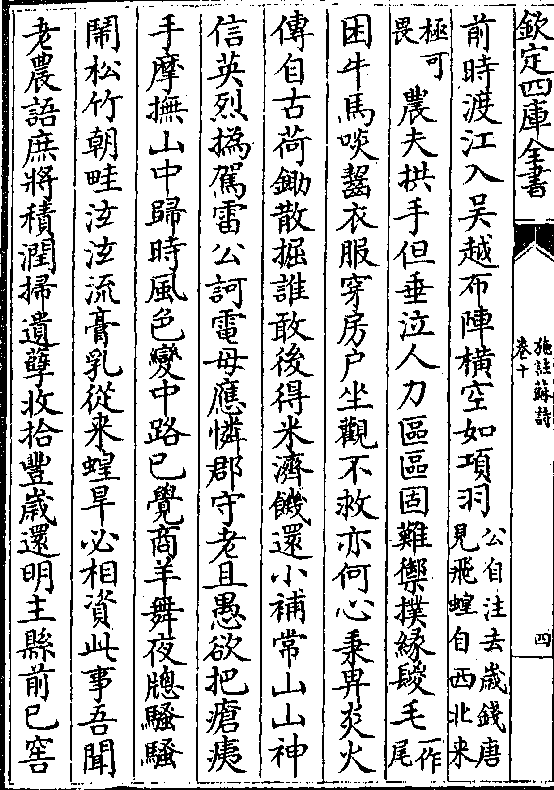 欽定四庫全書
施註蘇詩
卷十
四
前時渡江入吳越布陣橫空如項羽公自注去歲錢唐見飛蝗自西北来
極可畏農夫拱手但垂泣人力區區固難禦撲緣鬉毛一作尾
困牛馬啖齧衣服穿房户坐觀不救亦何心秉畀炎火
傳自古荷鋤散掘誰敢後得米濟饑還小補常山山神
信英烈撝駕雷公訶電母應憐郡守老且愚欲把瘡痍
手摩撫山中歸時風色變中路已覺商羊舞夜牕騷騷
鬧松竹朝畦泫泫流膏乳從来蝗旱必相資此事吾聞
老農語庶將積潤掃遺孽收拾豐歲還明主縣前已窖